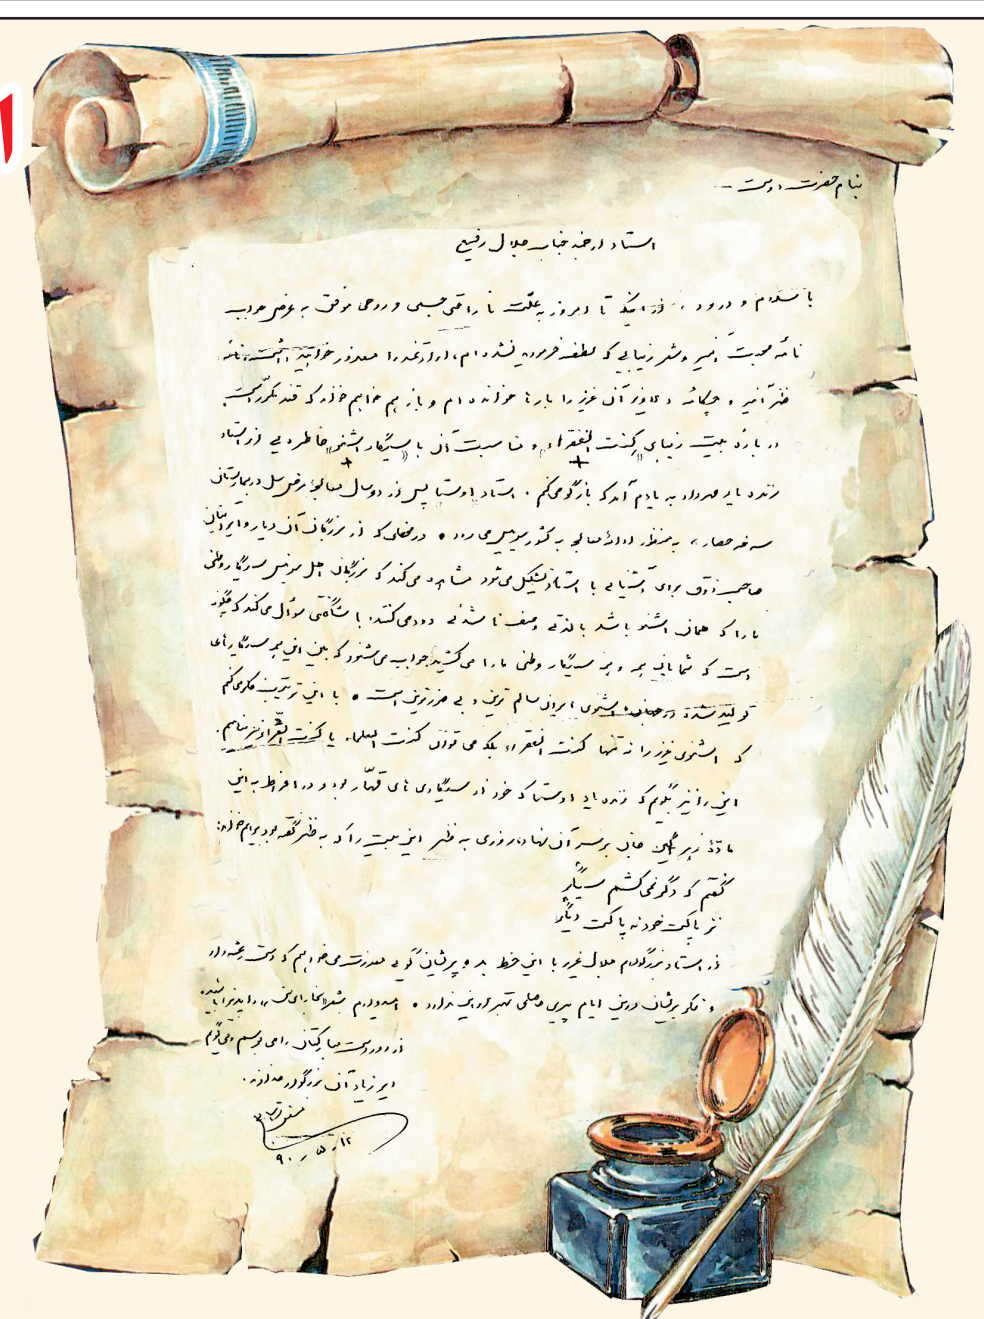 بنام حضرت دوست
استاد ارجمند جناب جلال رفیع
با سلام و درود، از اینکه تا امروز به علّت ناراحتی جسمی و روحی موفق به عرض جواب
نامهٔ محبت آمیز و شعر زیبایی که لطف فرموده نشده‌ام، ارادتمند را معذور خواهید داشت. نامه
طنز آمیز و چکامه آن عزیز را بارها خوانده‌ام و باز هم خواهم خواند که قند مکرّر است
درباره بیت زیبای «کنت الفقراء» و مناسبت آن با «سیگار اشنو» خاطره‌یی از استاد
زنده یاد مهرداد به یادم آمد که بازگو می‌کنم. استاد اوستا پس از دو سال معالجه مرض سل در بیمارستانی
به منظور ادامهٔ معالجه به کشور سوییس می‌رود. در محفلی که از بزرگان آن دیار و ایرانیان
صاحب ذوق برای آشنایی با استاد تشکیل می‌شود مشاهده می‌کند که بزرگان اهل سوئیس سیگار وطنی
ما را که همان اشنو باشد با لذتی وصف ناشدنی دود می‌کنند. با شگفتی سؤال می‌کند که چگونه
است که شمایان همه سیگار وطنی ما را می‌کشید جواب می‌شنود که بین این همه سیگارهای
تولید شده در جهان، اشنوی ایران سالم ترین و بی ضررترین است. با این ترتیب فکر می‌کنم
که اشنوی عزیز را نه تنها کنت الفقراء بلکه می‌توان کنت العلماء یا کنت الشعراء نیز بنامیم.
این را نیز بگویم که زنده یاد اوستا که خود از سیگاری های قهّار بود و در افراط به این
مادّهٔ زهرآگین جان بر سر آن نهاد، روزی به طنز این بیت را که به طنز گفته بود برایم خواند:
گفتم که دگر نمی‌کشم سیگار
نز پاکت خود نه پاکت دیگر
از استاد بزرگوارم جلال عزیز با این خط بد و پریشان گویی معذرت می‌خواهم که دست رعشه‌دار
و فکر پریشان در این ایام پیری حاصلی بهتر از این ندارد. امیدوارم شعر را پذیرا باشید.
از دور دست مبارکتان را می‌بوسم و می‌گویم
از یاد آن بزرگوار
۹۰/۵/۱۲